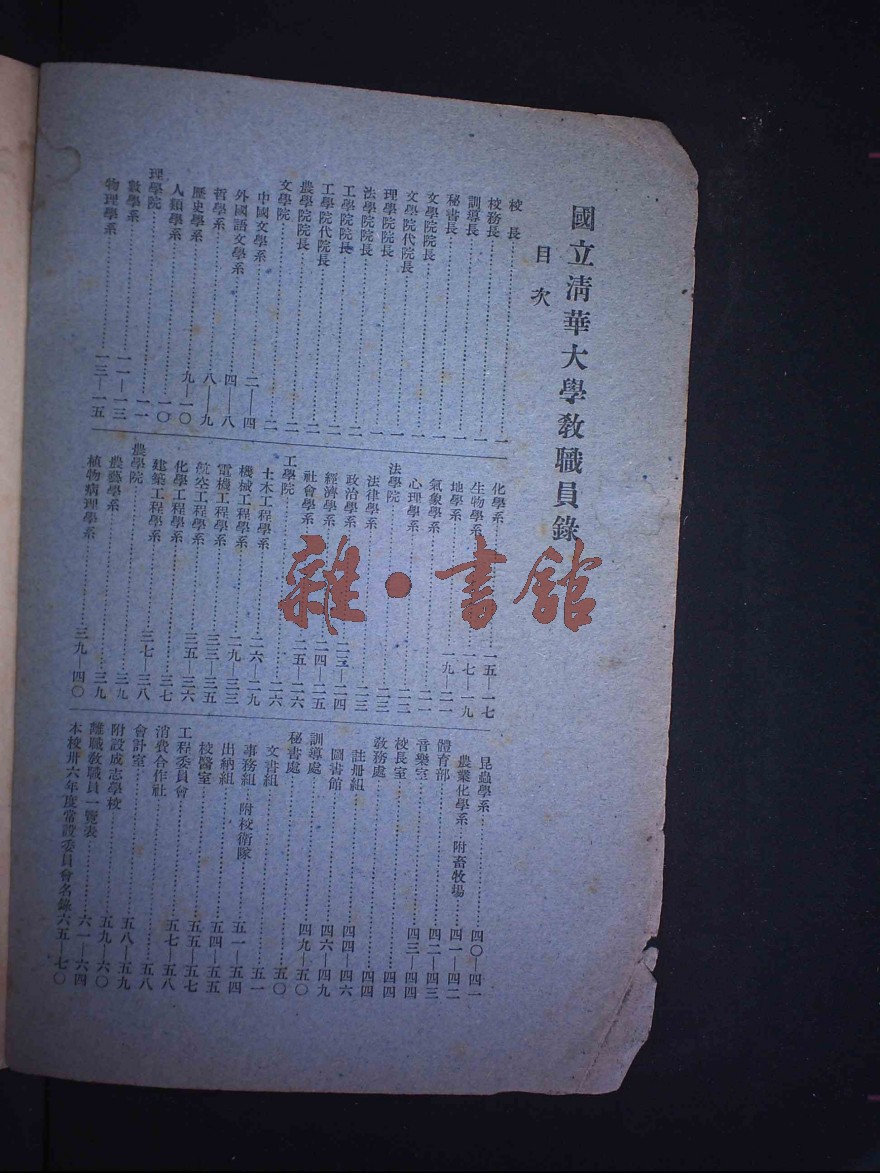 國立清華大學敎職員錄
目次
校長……一
敎務長……一
訓導長……一
秘書長……一
文學院院長……一
文學院代院長……一
理學院院長……一
法學院院長……二
工學院院長……二
工學院代院長……二
農學院院長……二
文學院……二
中國文學系……二—四
外國語文學系……四—八
哲學系……八—九
歷史學系……九—一〇
人類學系……一〇
理學院……一一
數學系……一一—一三
物理學系……一三—一五
化學系……一五—一七
生物學系……一七—一九
地學系……一九—二一
氣象學系……二一
心理學系……二二
法學院……二三
法律學系……二三
政治學系……二三—二四
經濟學系……二四—二五
社會學系……二五—二六
工學院……二六
土木工程學系……二六—二九
機械工程學系……二九—三三
電機工程學系……三三—三五
航空工程學系……三五—三六
化學工程學系……三七
建築工程學系……三七—三八
農學院……三九
農藝學系……三九
植物病理學系……三九—四〇
昆蟲學系……四〇—四一
農業化學系 附畜牧場……四一—四二
體育部……四二—四三
音樂室……四三—四四
校長室……四四
敎務處……四四
註册組……四四—四六
圖書館……四六—四九
訓導處……四九—五〇
秘書處……五〇
文書組……五一
事務組 附校衛隊……五一—五四
出納組……五四—五五
校醫室……五五—五七
工程委員會……五七—五八
消費合作社……五八
會計室……五八—五九
附設成志學校……五九—六〇
離職敎職員一覽表……六一—六四
本校卅六年度常設委員會名錄六五—七〇
雜·書館